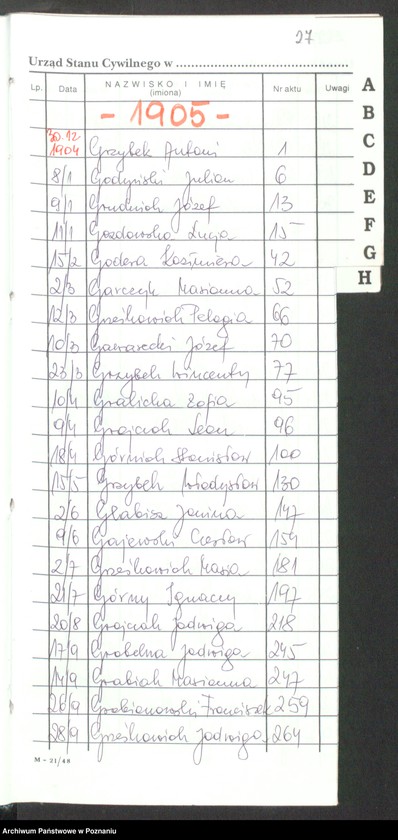 27
Urząd Stanu Cywilnego w
Lp. Data NAZWISKO I IMIĘ (imiona) Nr aktu Uwagi
- 1905 -
30.12 1904 Grzybek Antoni 1
8/1 Godyński Julian 6
9/1 Grudniok Józef 13
11/1 Gozdowska Łucja 15
15/2 Godera Kazimiera 42
2/3 Garczyk Marianna 52
12/3 Grześkowiak Pelagia 66
10/3 Gawarecki Józef 70
23/3 Grzybek Wincenty 77
10/4 Gralicha Zofia 95
9/4 Grajcak Leon 96
18/4 Górniak Stanisław 100
15/5 Grzybek Władysław 130
2/6 Głabisz Janina 147
9/6 Gajewski Czesław 154
2/7 Grześkowiak Maria 181
21/7 Górny Ignacy 197
20/8 Grajcak Jadwiga 218
17/9 Grobelna Jadwiga 245
14/9 Grabiak Marianna 247
26/9 Grabianowski Franciszek 259
28/9 Grześkowiak Jadwiga 264
M - 21/48
A
B
C
D
E
F
G
H
Archiwum Państwowe w Poznaniu